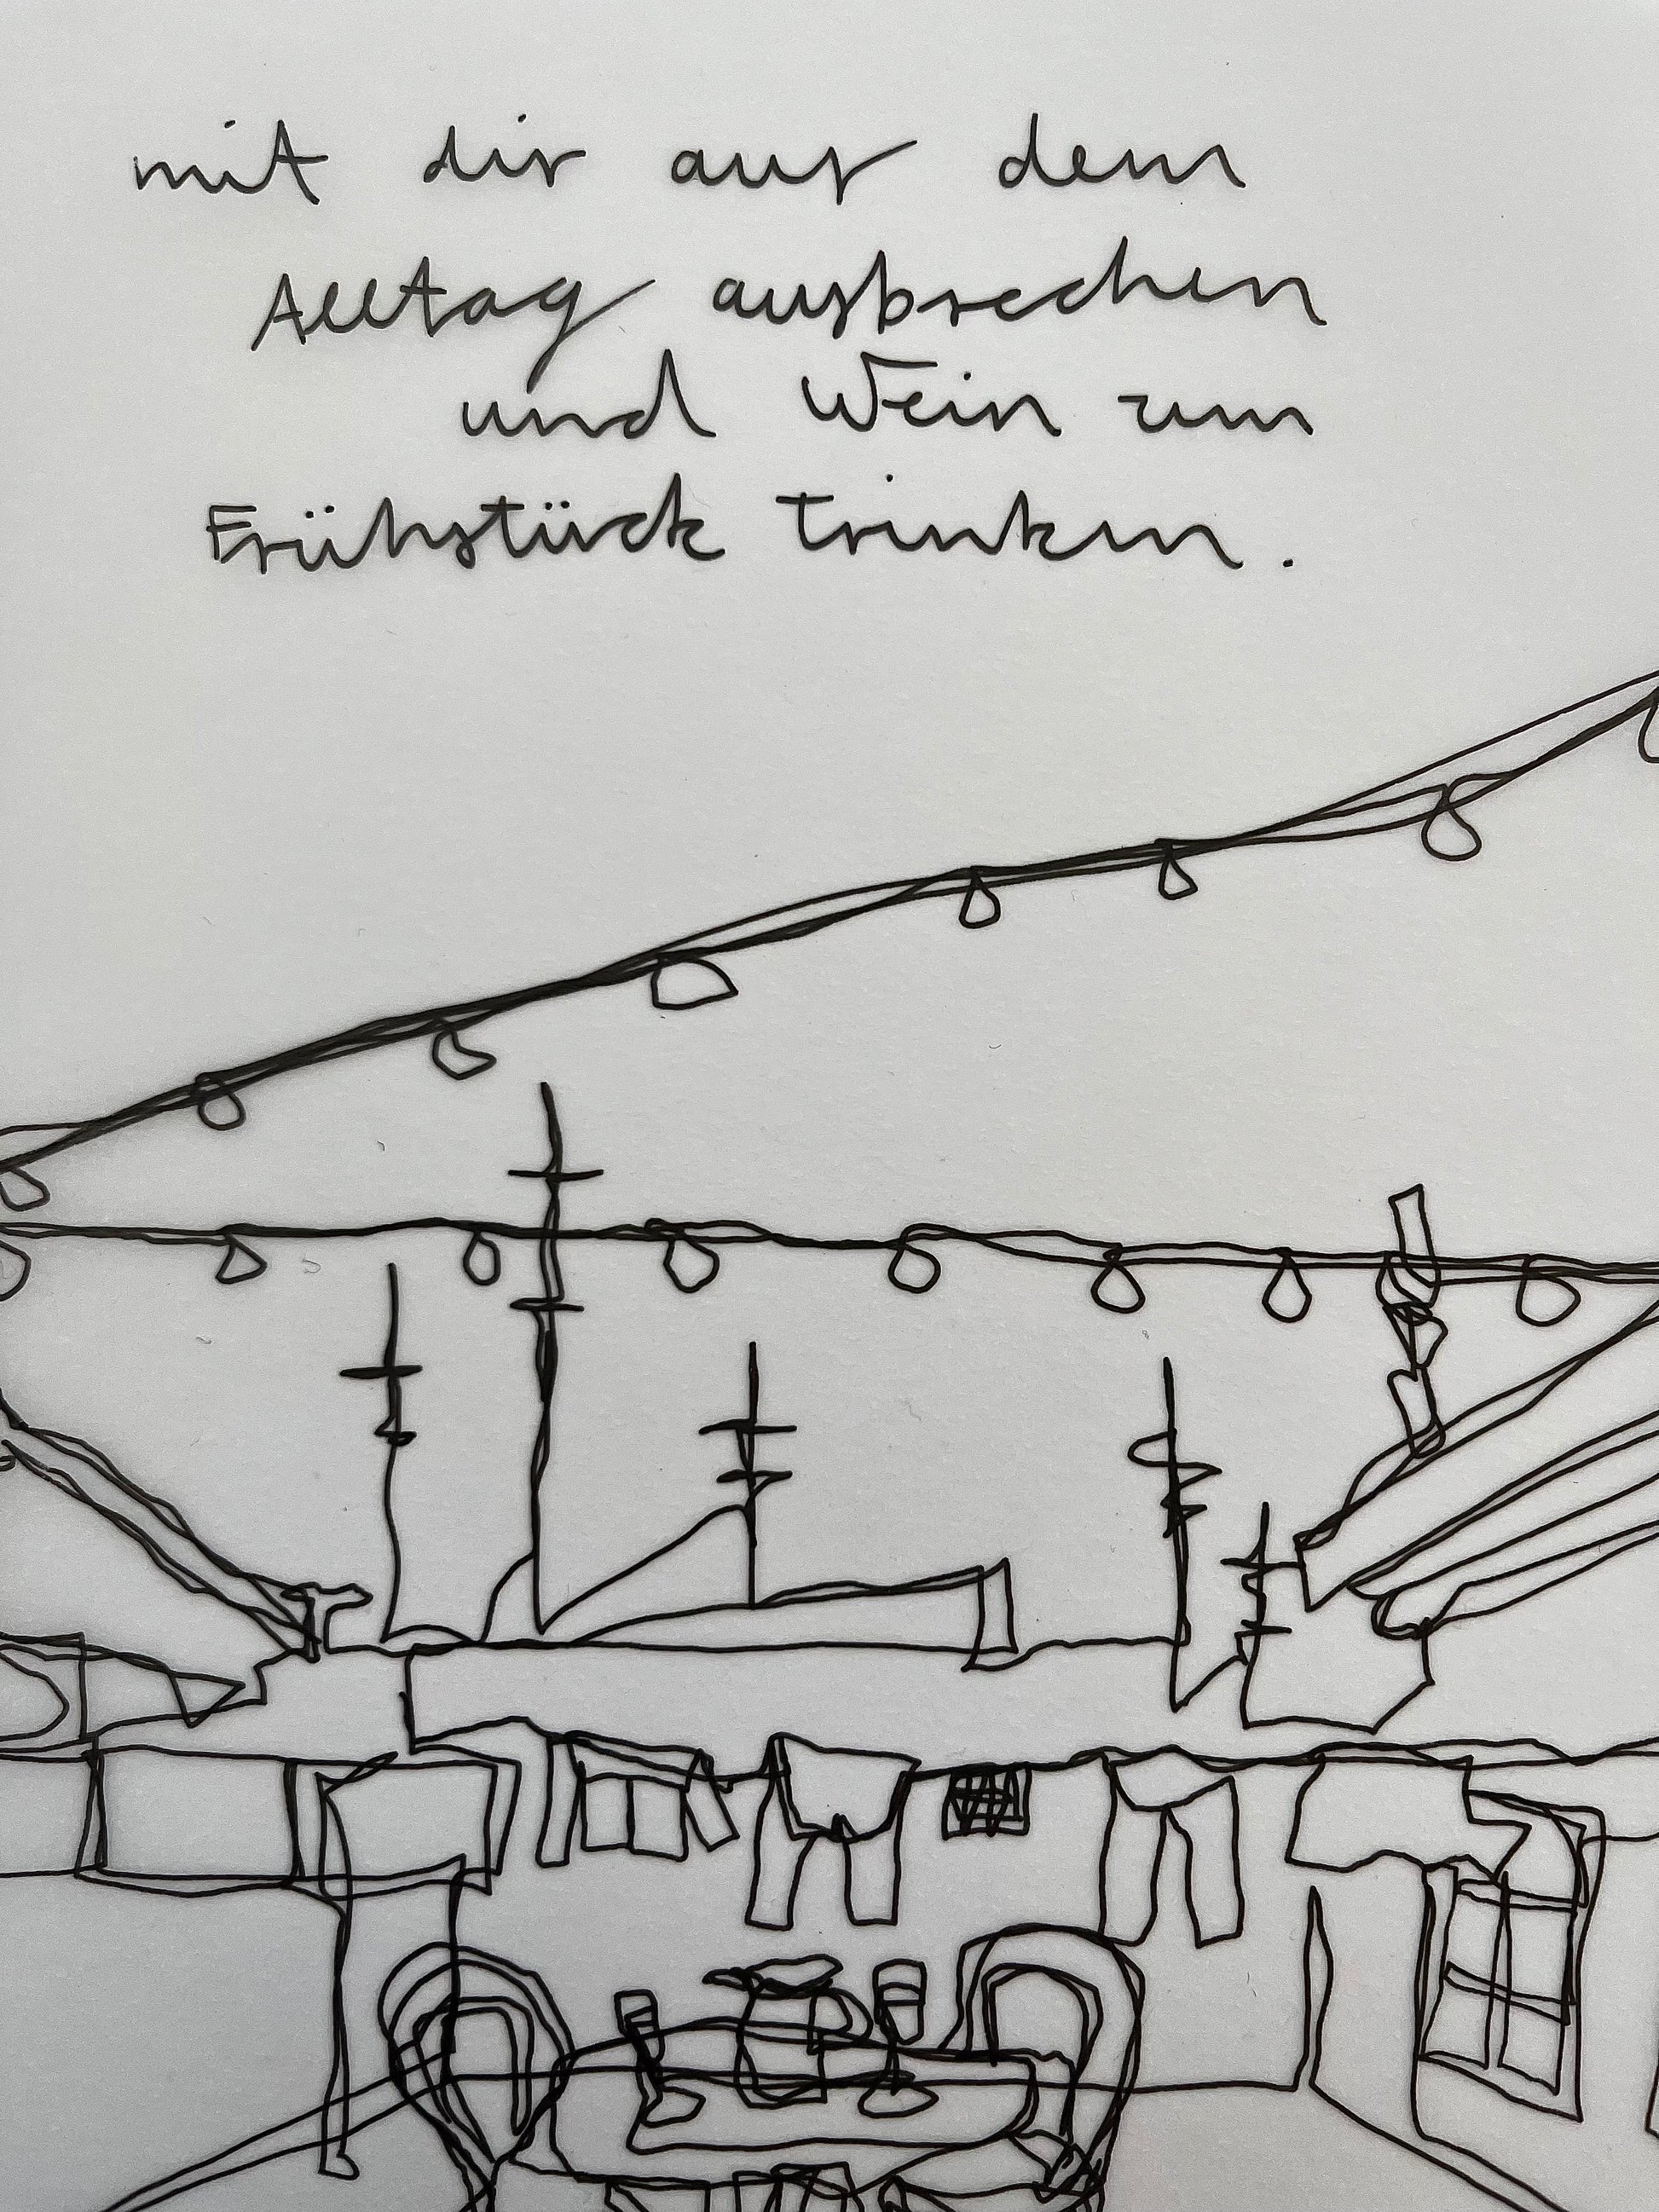 mit dir aus dem
Alltag ausbrechen
und Wein zum
Frühstück trinken.